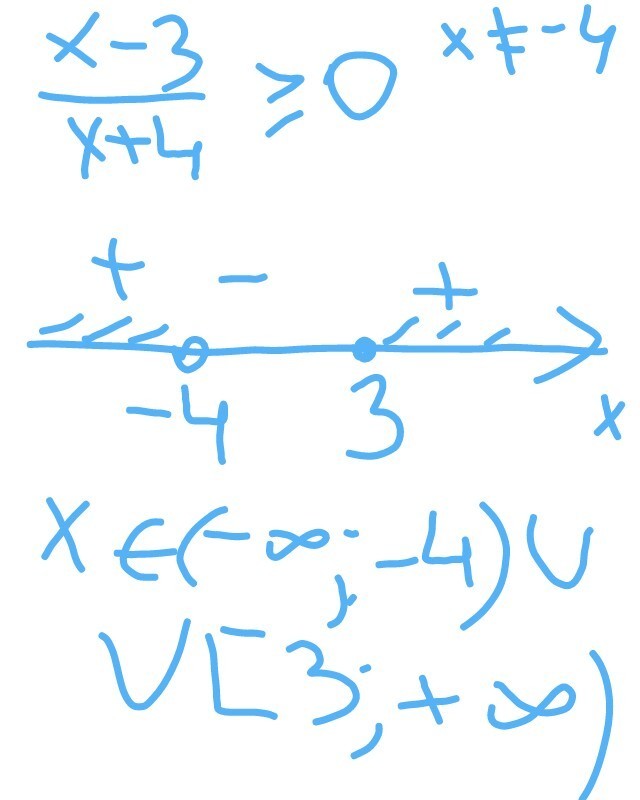 x-3/x+4 ≥ 0 x≠-4
+ - +
-4 3 x
x ∈ (-∞; -4) ∪
∪ [3; +∞)